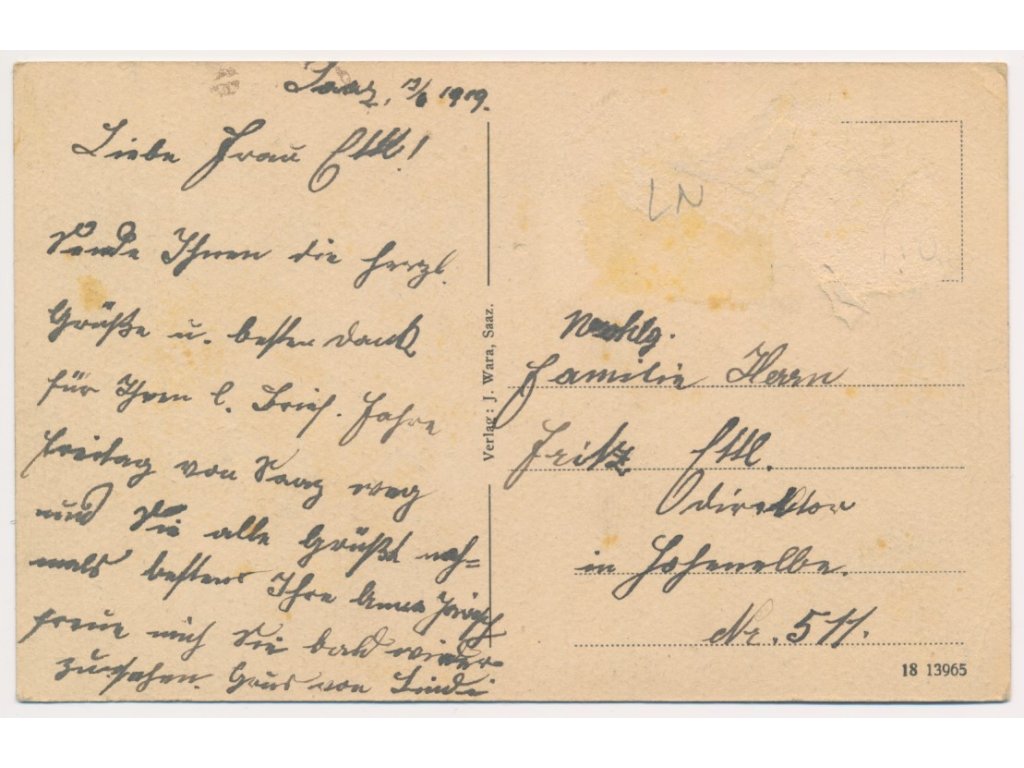 Saaz, 13/8 1919.
Liebe Frau Ettl!
Sende Ihnen die herzl.
Grüße u. besten Dank
für Ihren l. Brief. Fahre
Freitag von Saaz weg
und Sie alle Grüßt noch=
mals bestens Ihre Anna
freue mich Sie bald wieder
zusehen. Grus von Lindi
Verlag: J. Wara, Saaz.
LN
Wohlg.
Familie Herrn
Fritz Ettl.
Odirektor
in Hohenelbe.
Nr. 511.
18 13965